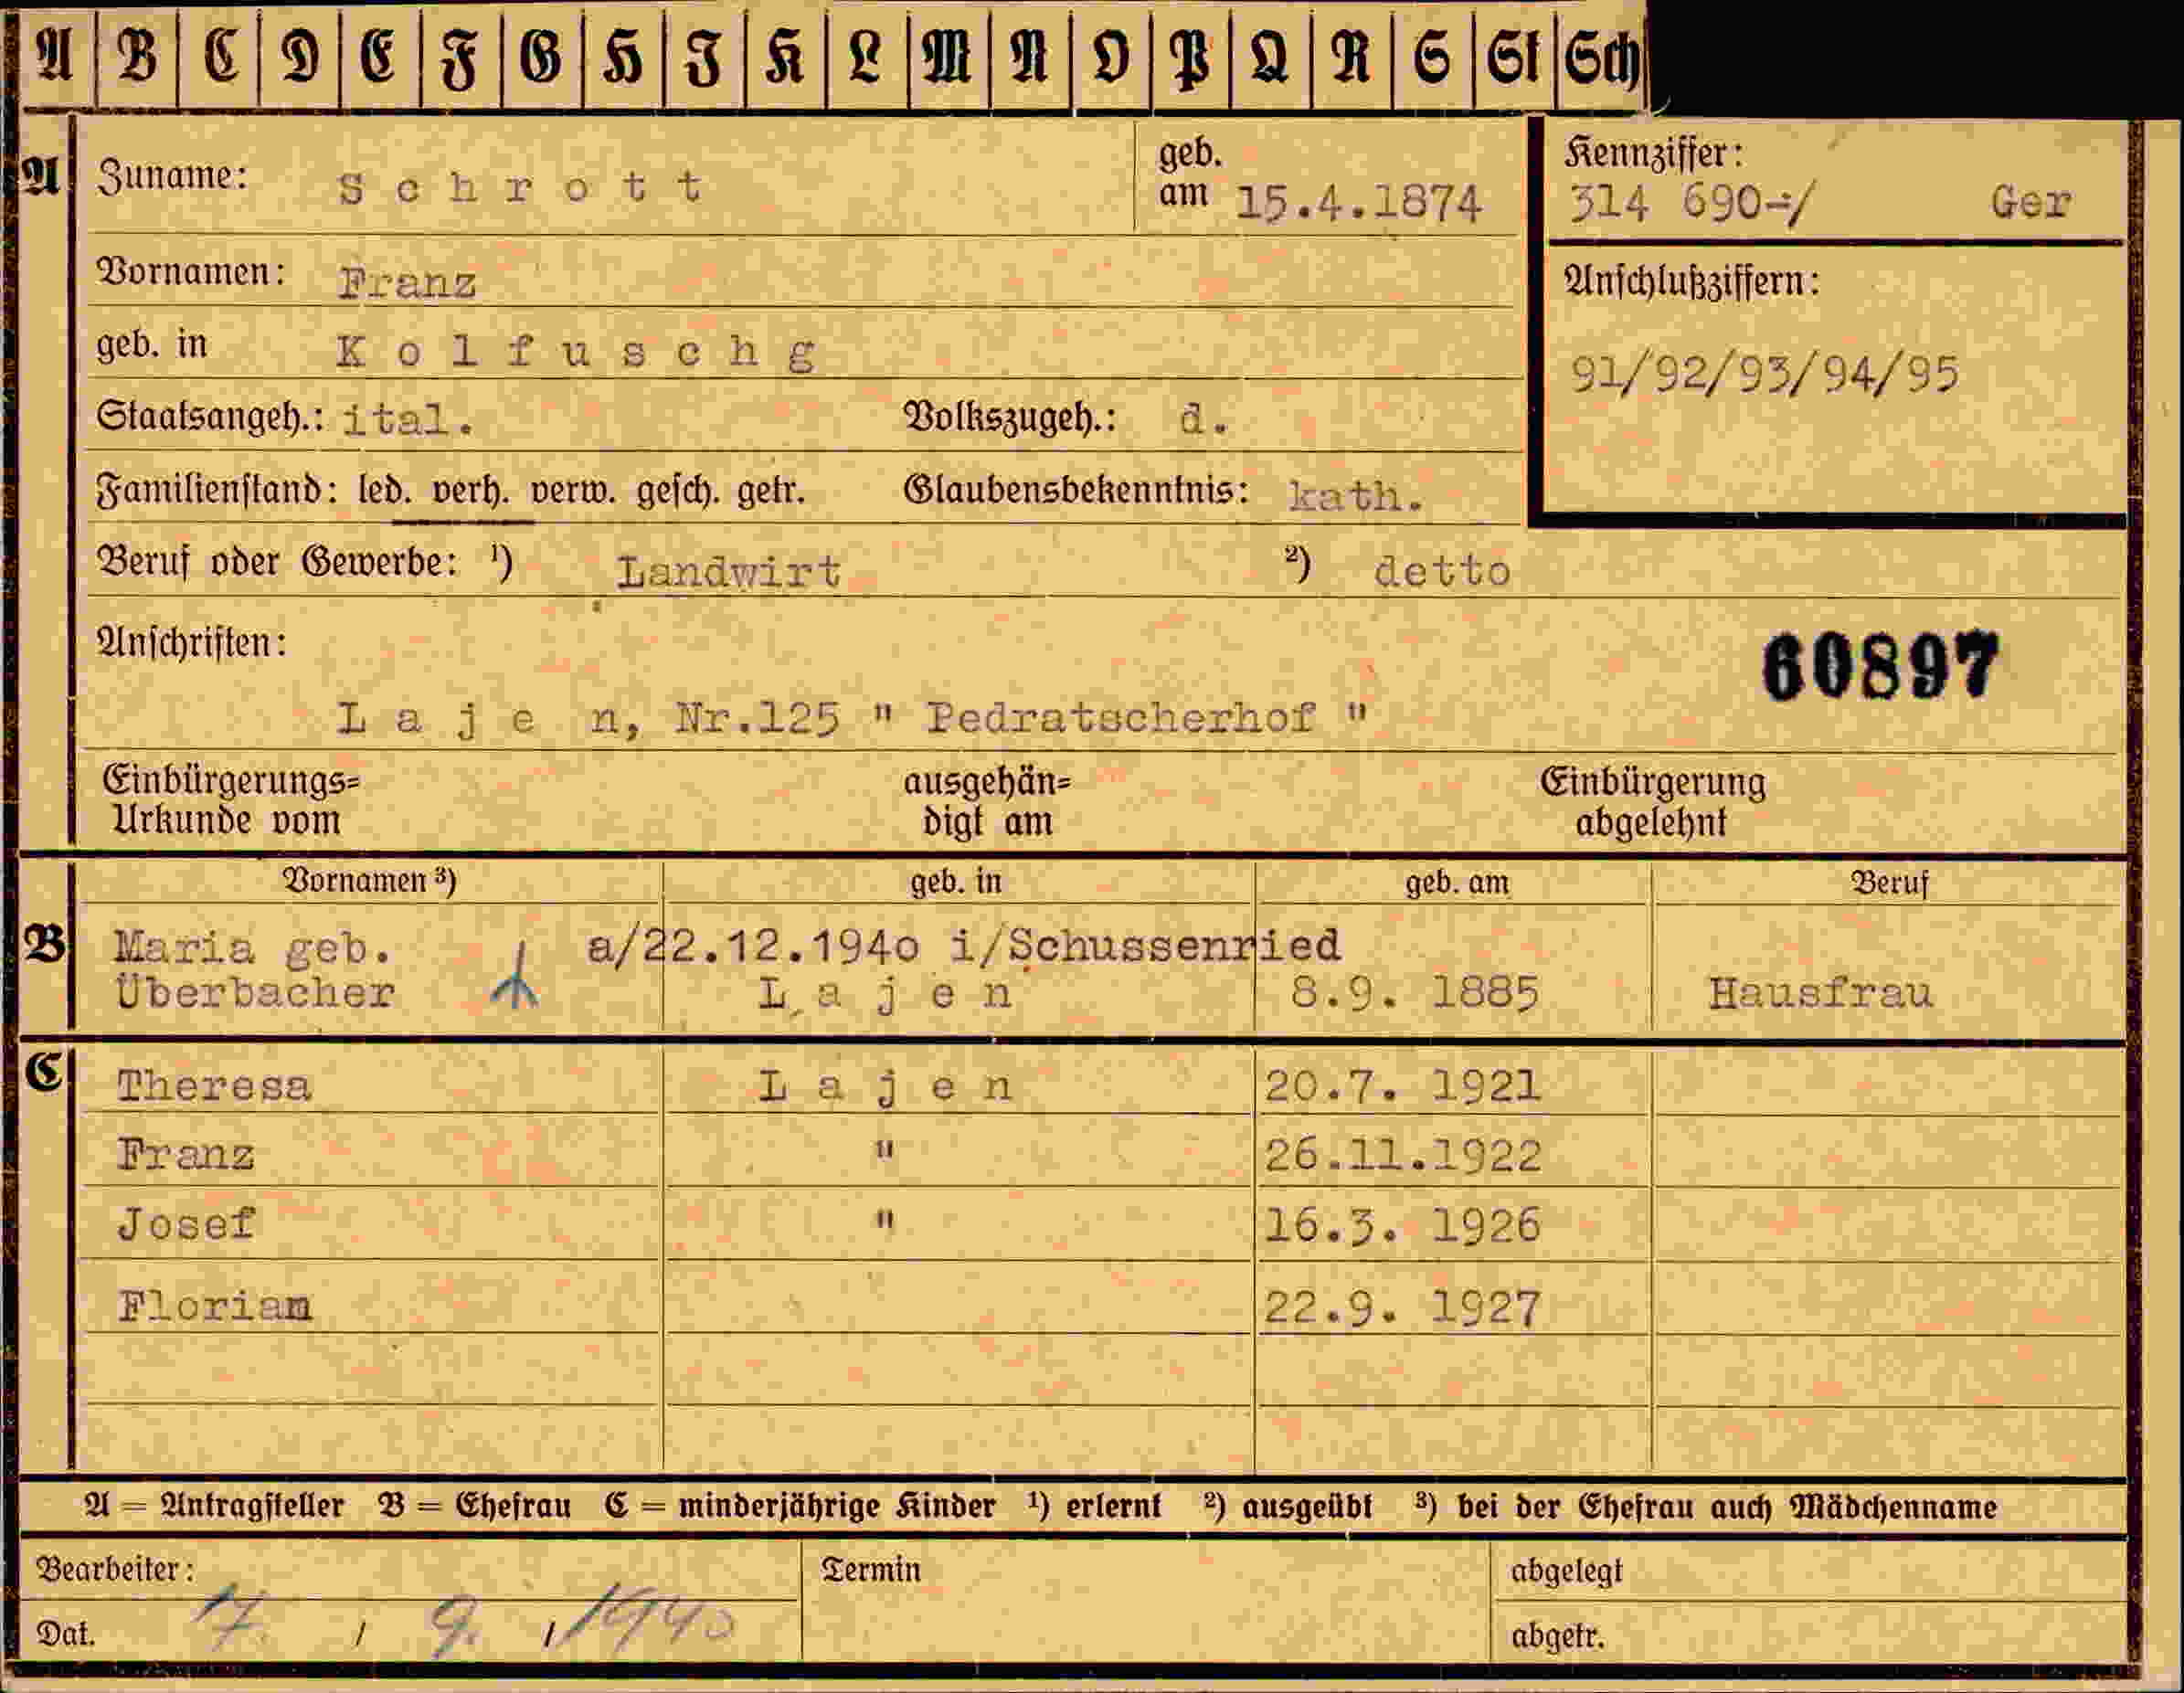 A B C D E F G H I K L M N O P Q R S St Sch
A Zuname: Schrott geb. am 15.4.1874 Kennziffer: 314 690-:/ Ger
Vornamen: Franz Anschlußziffern:
geb. in Kolfuschg 91/92/93/94/95
Staatsangeh.: ital. Volkszugeh.: d.
Familienstand: led. verh. verw. gesch. getr. Glaubensbekenntnis: kath.
Beruf oder Gewerbe: ¹) Landwirt ²) detto
Anschriften: 60897
Lajen, Nr.125 " Pedratscherhof "
Einbürgerungs= ausgehän= Einbürgerung
Urkunde vom digt am abgelehnt
Vornamen ³) geb. in geb. am Beruf
B Maria geb. a/22.12.1940 i/Schussenried
Überbacher Lajen 8.9. 1885 Hausfrau
C Theresa Lajen 20.7. 1921
Franz " 26.11.1922
Josef " 16.3. 1926
Florian 22.9. 1927
A = Antragsteller B = Ehefrau C = minderjährige Kinder ¹) erlernt ²) ausgeübt ³) bei der Ehefrau auch Mädchenname
Bearbeiter: Termin abgelegt
Dat. 17. / 9. / 1940 abgetr.